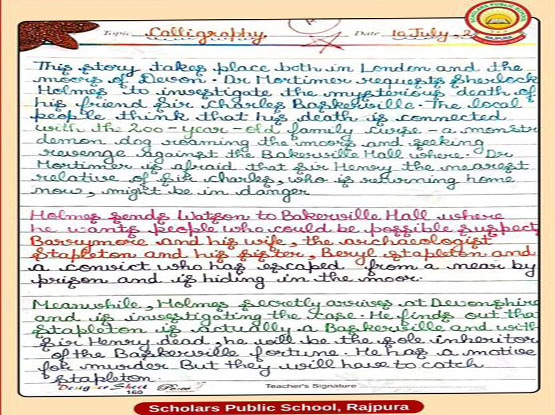 Topic Calligraphy Date 16 July, 2
This story takes place both in London and the
moors of Devon. Dr Mortimer requests Sherlock
Holmes to investigate the mysterious death of
his friend Sir Charles Baskerville. The local
people think that his death is connected
with the 200-year-old family curse - a monstr
demon dog roaming the moors and seeking
revenge against the Bakerville Hall where. Dr
Mortimer is afraid that Sir Henry the nearest
relative of Sir Charles, who is returning home
now, might be in danger
Holmes sends Watson to Bakerville Hall where
he wants people who could be possible suspect
Barrymore and his wife, the archaeologist
Stapleton and his sister, Beryl Stapleton and
a convict who has escaped from a near by
prison and is hiding in the moor.
Meanwhile, Holmes secretly arrives at Devonshire
and is investigating the case. He finds out tha
Stapleton is actually a Baskerville and with
Sir Henry dead, he will be the sole inheritor
of the Baskerville fortune. He has a motive
for murder But they will have to catch
Stapleton.
Teacher's Signature
160
Scholars Public School, Rajpura